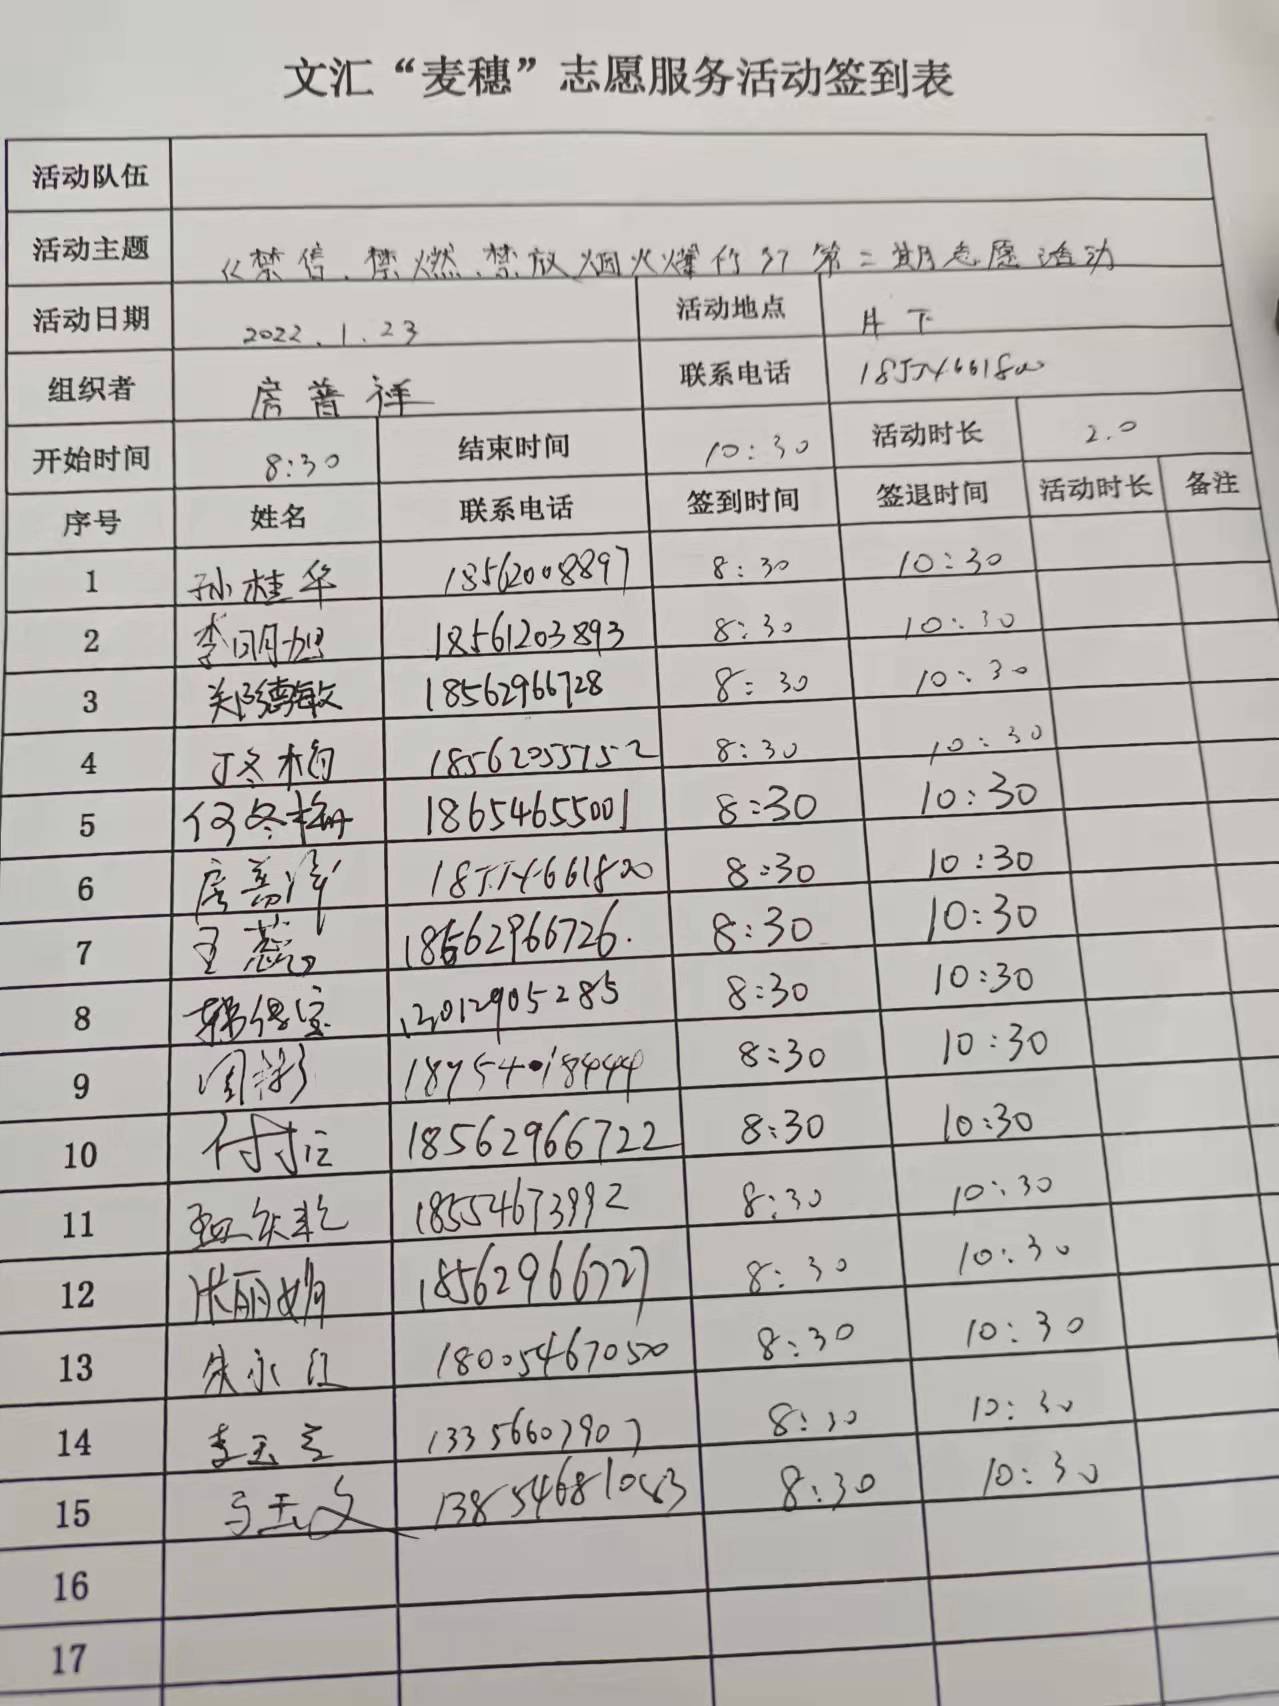 文汇“麦穗”志愿服务活动签到表
活动队伍
活动主题 《禁售、禁燃、禁放烟火爆竹》第二期志愿活动
活动日期 2022.1.23 活动地点 井下
组织者 房普祥 联系电话 18554661800
开始时间 8:30 结束时间 10:30 活动时长 2.0
序号 姓名 联系电话 签到时间 签退时间 活动时长 备注
1 孙桂华 18562008897 8:30 10:30
2 李明旭 18561203893 8:30 10:30
3 郑德敏 18562966728 8:30 10:30
4 丁冬梅 18562055752 8:30 10:30
5 何冬梅 18654655001 8:30 10:30
6 房普祥 18554661800 8:30 10:30
7 王蕊 18562966726. 8:30 10:30
8 8:30 10:30
9 周彬 18754018444 8:30 10:30
10 18562966722 8:30 10:30
11 18554673992 8:30 10:30
12 张丽娟 18562966727 8:30 10:30
13 朱永红 18005467050 8:30 10:30
14 13356607907 8:30 10:30
15 马玉文 8:30 10:30
16
17